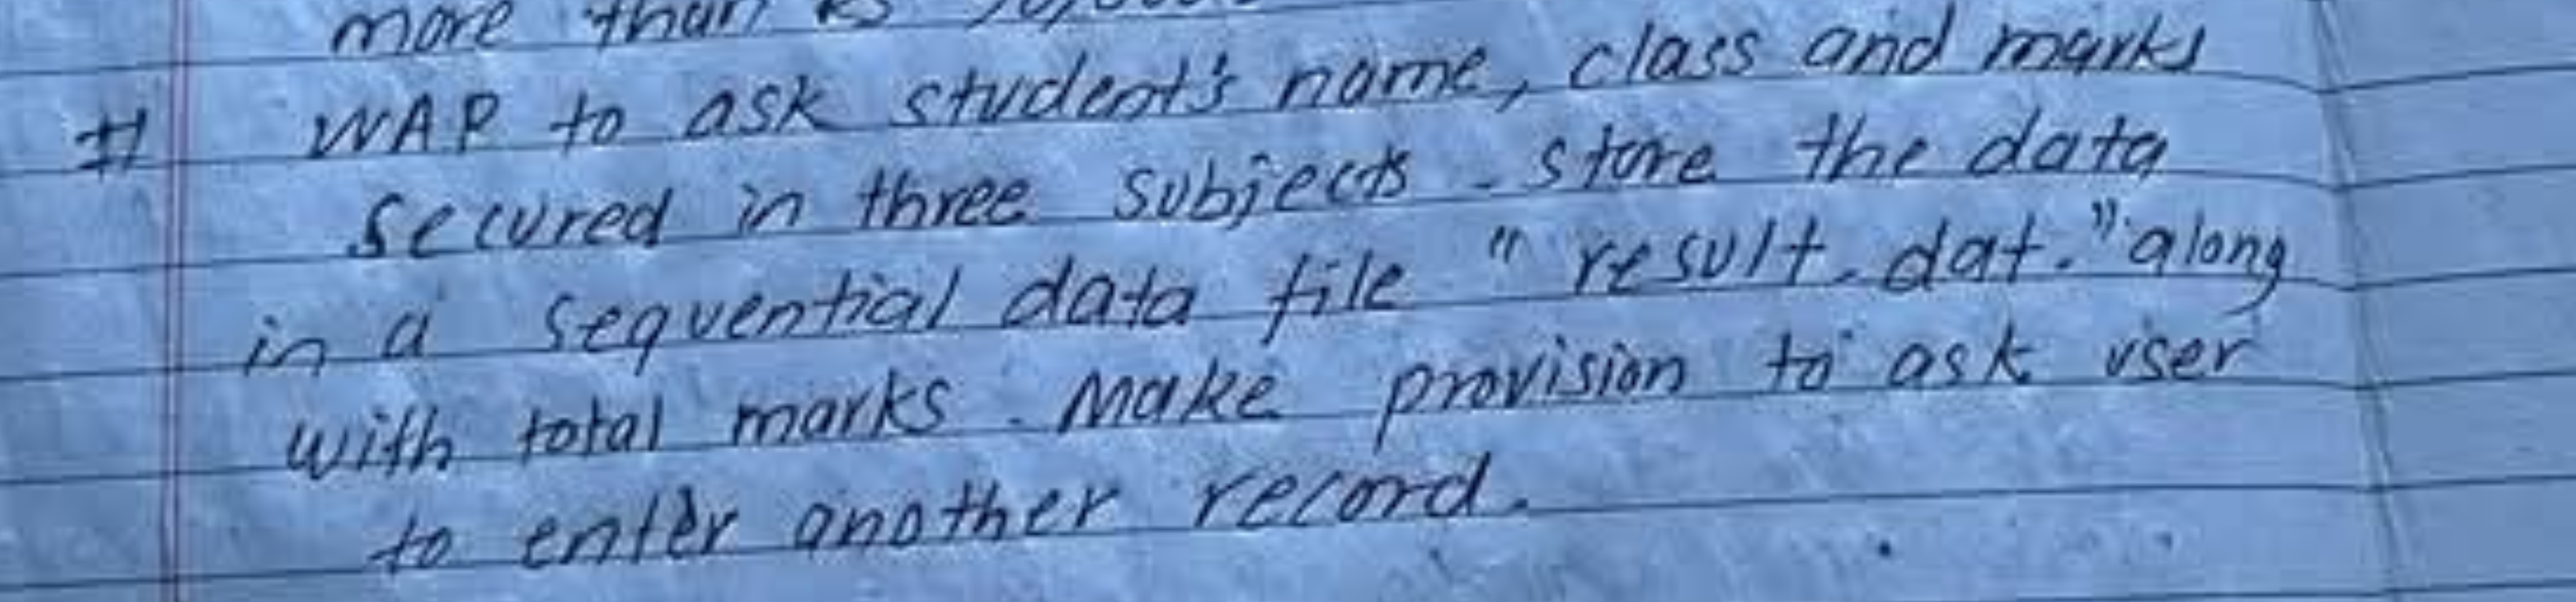 more than Rs
# WAP to ask student's name, class and marks
secured in three subjects. store the data
in a sequential data file "result.dat." along
with total marks. Make provision to ask user
to enter another record.